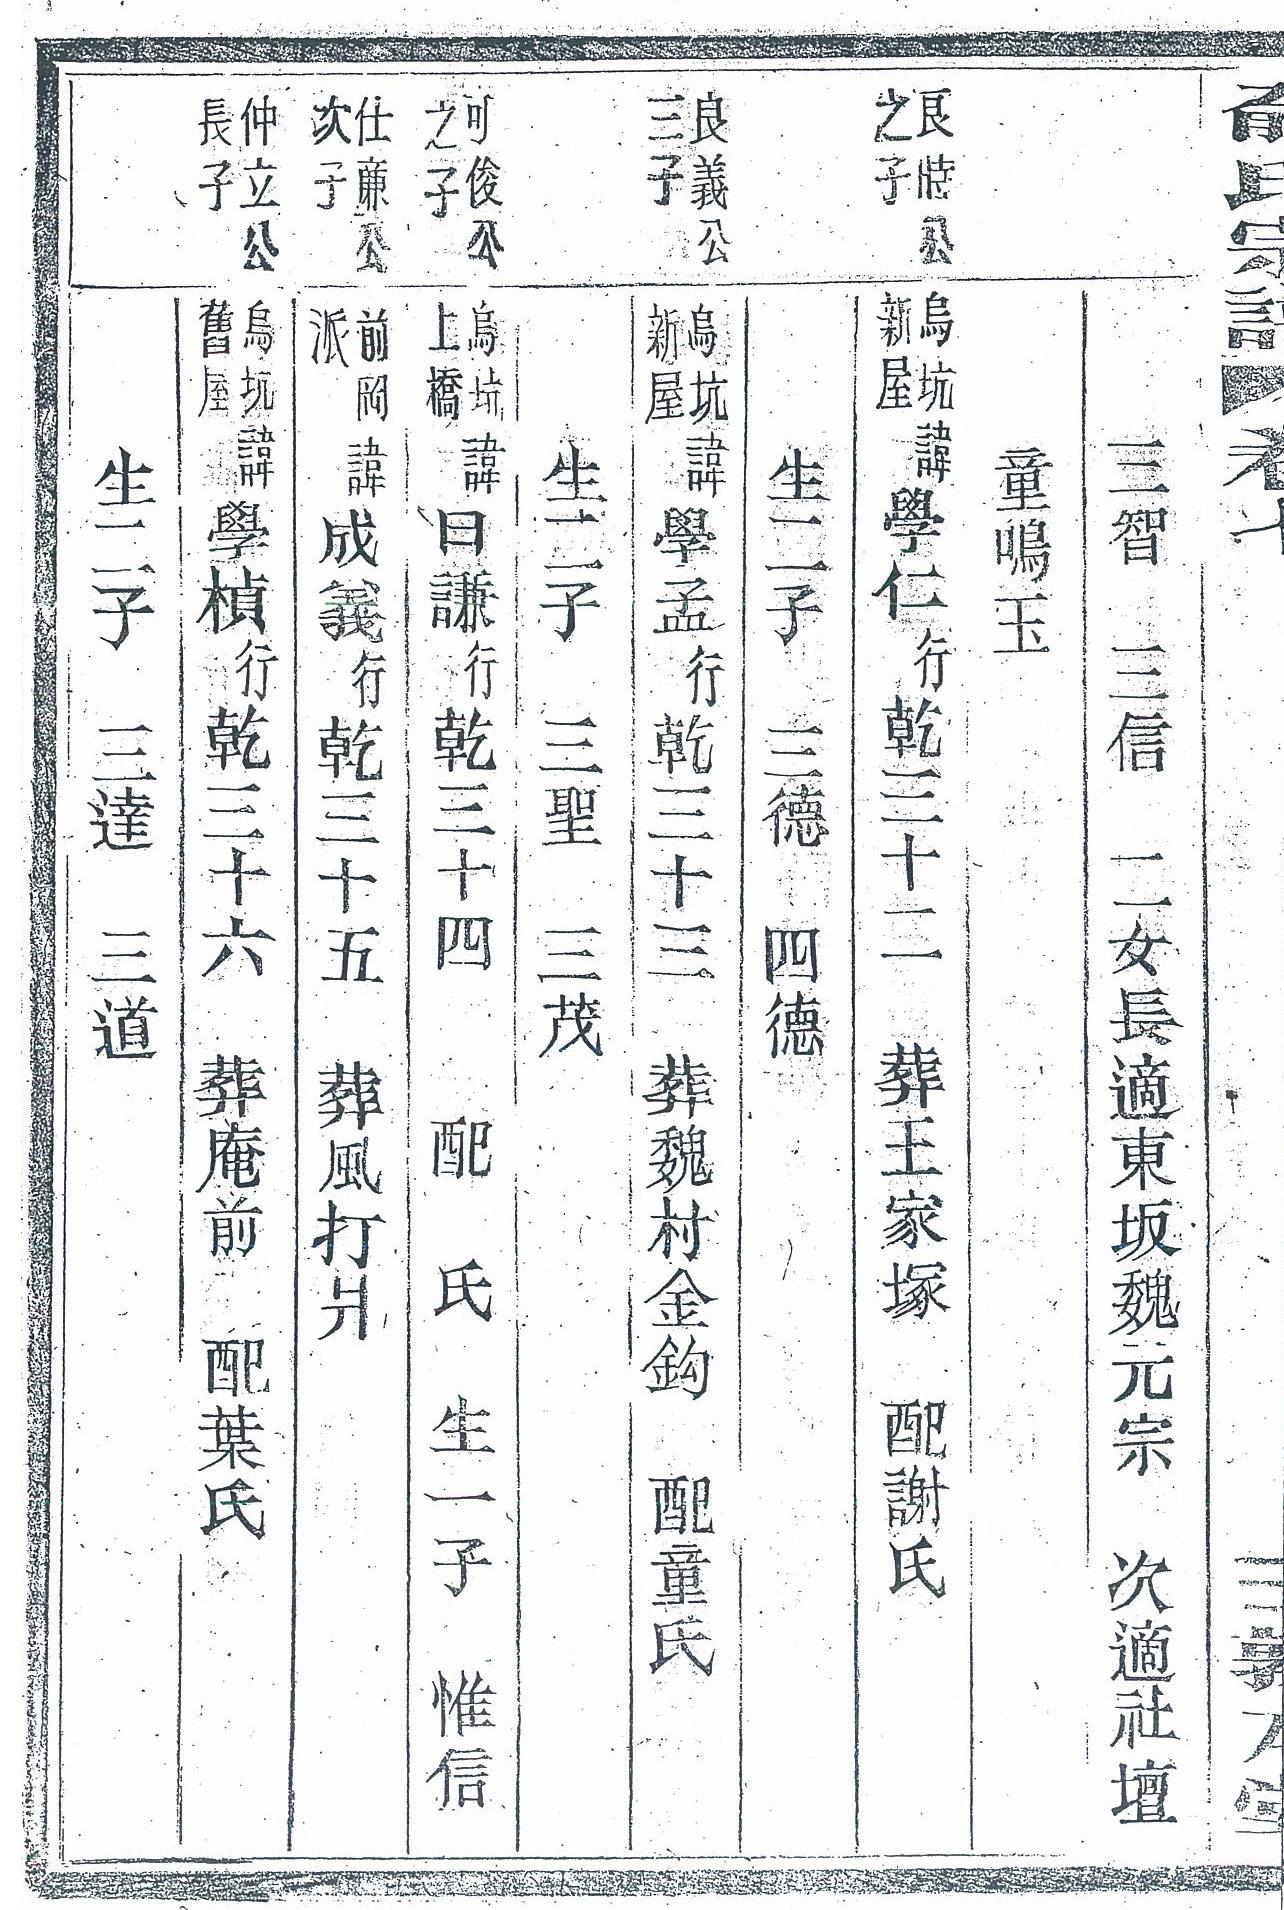 氏宗譜 卷十
三智 三信 二女長適東坂魏元宗 次適社壇
童鳴玉
良時公
之子
烏坑
新屋
諱學仁行乾三十二 葬王家塚 配謝氏
生二子 三德 四德
良義公
三子
烏坑
新屋
諱學孟行乾三十三 葬魏村金鈎 配童氏
生二子 三聖 三茂
可俊公
之子
烏坑
上橋
諱曰謙行乾三十四 配 氏 生一子 惟信
仕廉公
次子
前岡
派
諱成義行乾三十五 葬風打爿
仲立公
長子
烏坑
舊屋
諱學楨行乾三十六 葬庵前 配葉氏
生二子 三達 三道